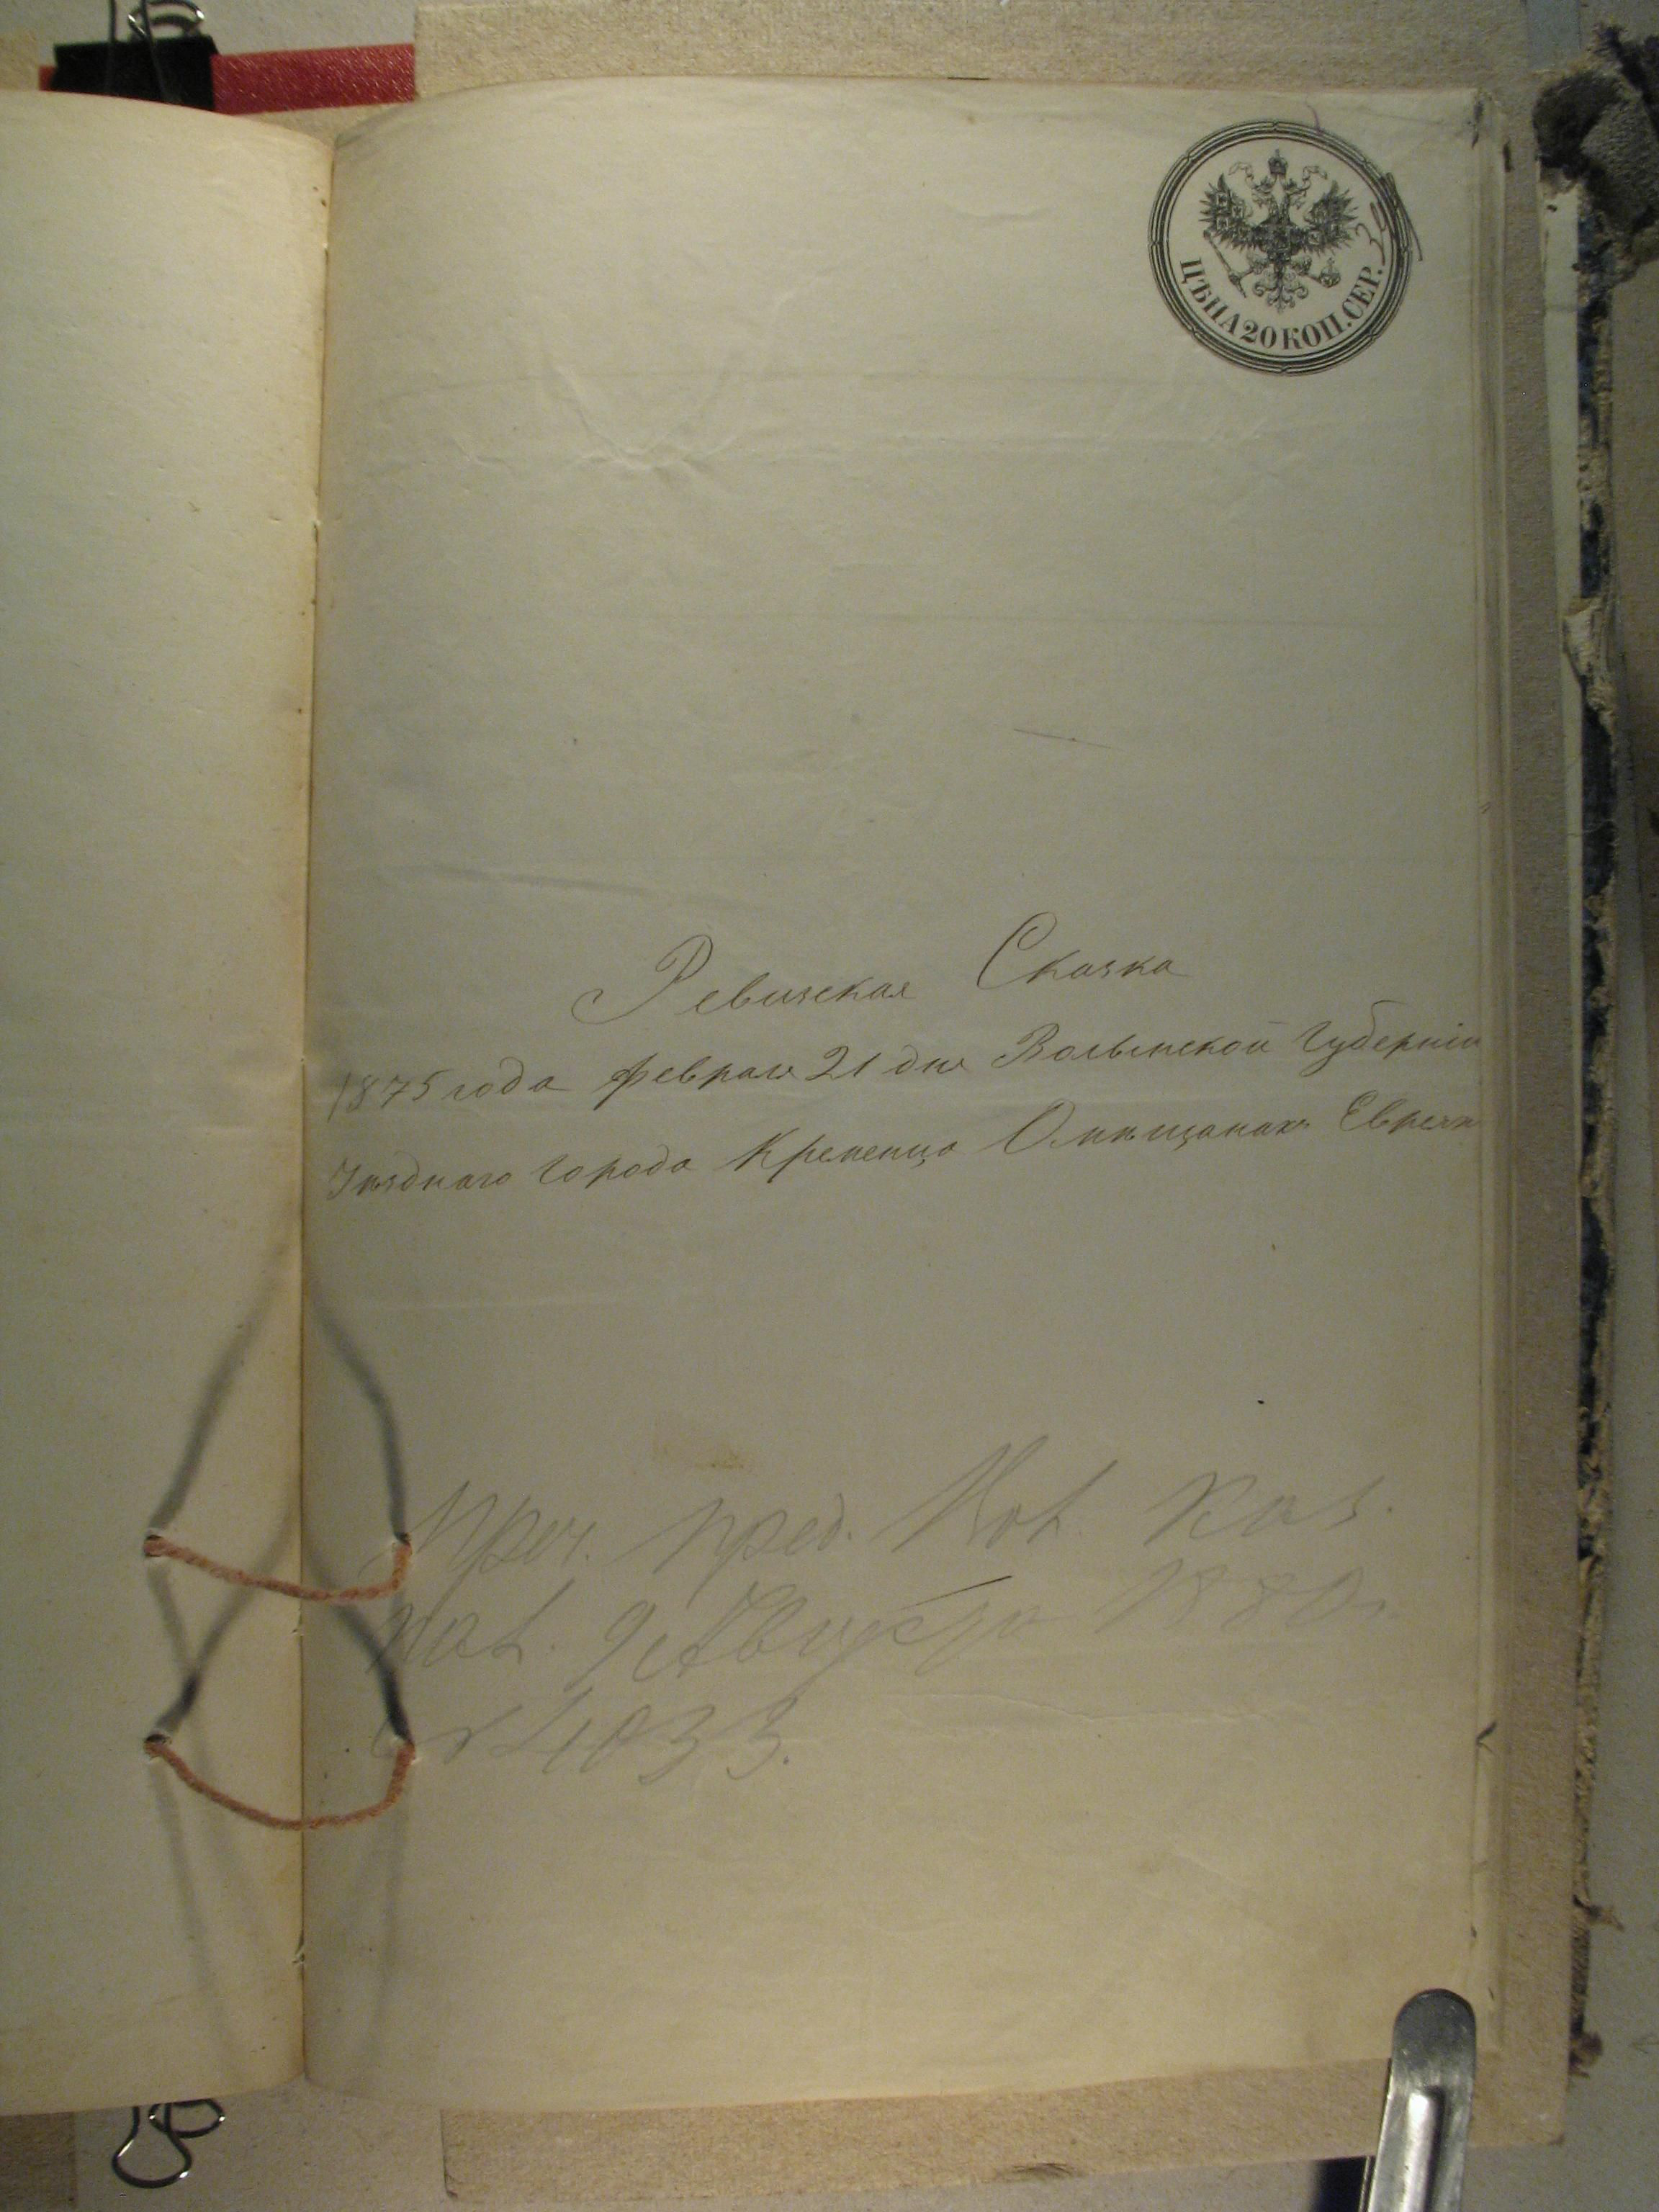 ЦѢНА 20 КОП. СЕР.
Ревизская Сказка
1875 года февраля 21 дня Волынской Губерніи
Уѣзднаго города Кременца О мѣщанахъ Евреяхъ
пред. Вол. Каз.
Пал. 9 Августа 1880 г.